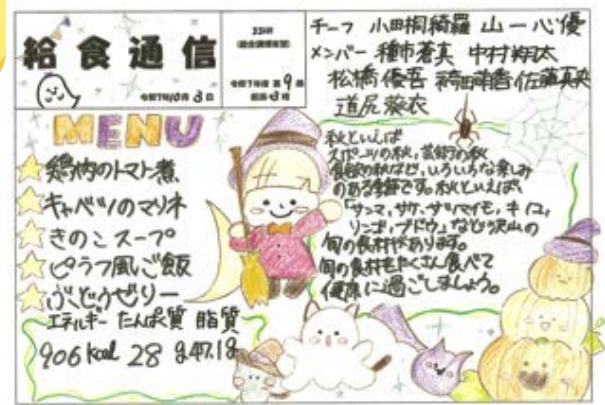 給食通信
令和7年10月3日
令和7年度 第9
チーフ 小田桐綺羅 山一心優
メンバー 種市蒼真 中村翔太
松橋優吾 袴田萌香 佐藤真央
道尻葵衣
MENU
鶏肉のトマト煮
キャベツのマリネ
きのこスープ
ピラフ風ご飯
ぶどうゼリー
エネルギー たんぱく質 脂質
906kcal 28g 47.1g
秋といえば
スポーツの秋、芸術の秋
食欲の秋など、いろいろな楽しみ
のある季節です。秋といえば、
「サンマ、サケ、サツマイモ、キノコ、
リンゴ、ブドウ」などの沢山の
旬の食材があります。
旬の食材をたくさん食べて
健康に過ごしましょう。